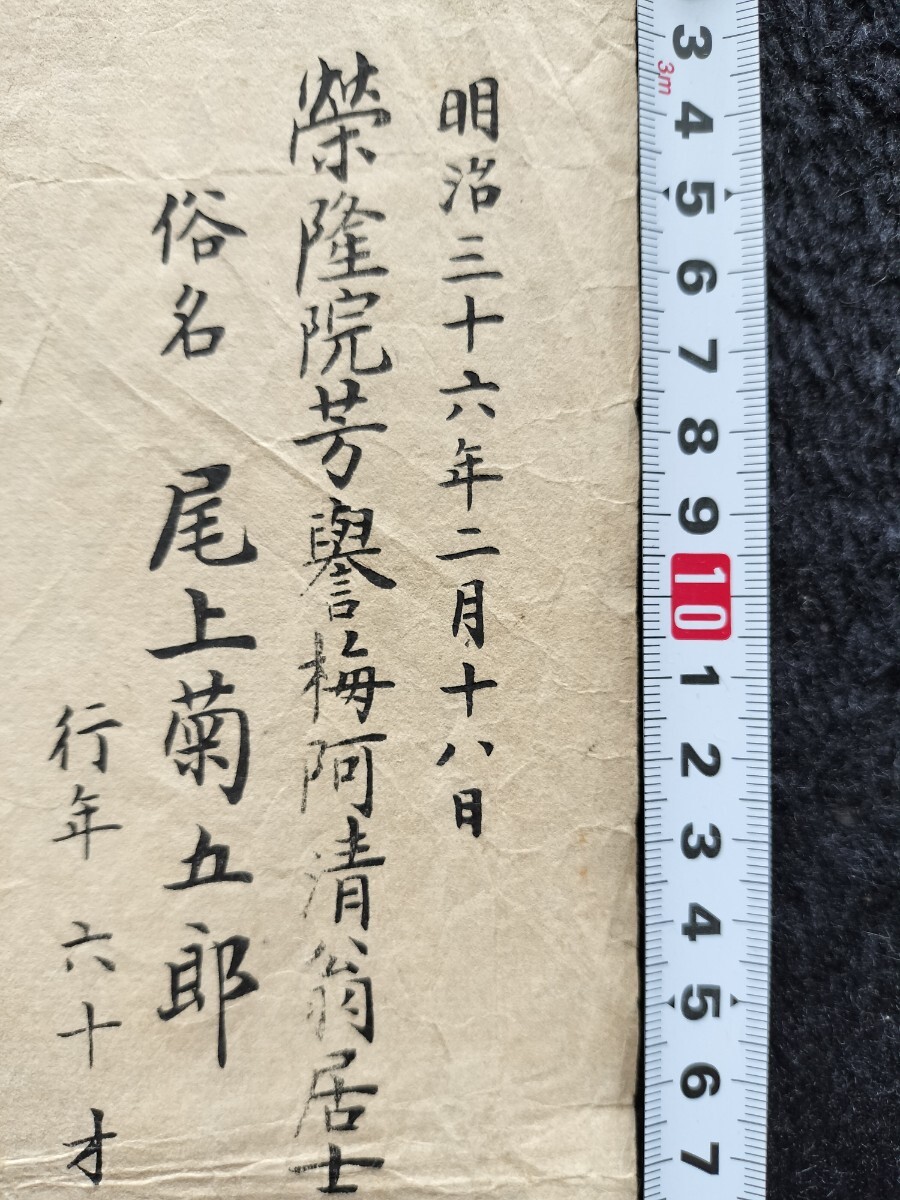 明治三十六年二月十八日
榮隆院芳譽梅阿清翁居士
俗名 尾上菊五郎
行年 六十才
3
3m
4
5
6
7
8
9
10
1
2
3
4
5
6
7